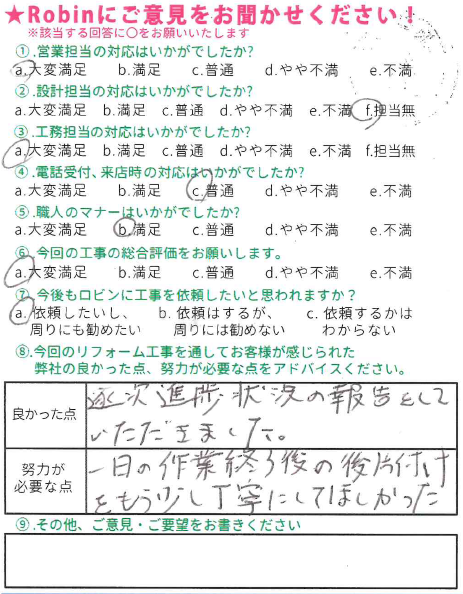 ★Robinにご意見をお聞かせください！
※該当する回答に〇をお願いいたします
①.営業担当の対応はいかがでしたか?
a.大変満足 b.満足 c.普通 d.やや不満 e.不満
②.設計担当の対応はいかがでしたか?
a.大変満足 b.満足 c.普通 d.やや不満 e.不満 f.担当無
③.工務担当の対応はいかがでしたか?
a.大変満足 b.満足 c.普通 d.やや不満 e.不満 f.担当無
④.電話受付、来店時の対応はいかがでしたか?
a.大変満足 b.満足 c.普通 d.やや不満 e.不満
⑤.職人のマナーはいかがでしたか?
a.大変満足 b.満足 c.普通 d.やや不満 e.不満
⑥.今回の工事の総合評価をお願いします。
a.大変満足 b.満足 c.普通 d.やや不満 e.不満
⑦.今後もロビンに工事を依頼したいと思われますか？
a.依頼したいし、 b. 依頼はするが、 c. 依頼するかは
周りにも勧めたい 周りには勧めない わからない
⑧.今回のリフォーム工事を通してお客様が感じられた
弊社の良かった点、努力が必要な点をアドバイスください。
良かった点
逐次進捗状況の報告をして
いただきました。
努力が
必要な点
一日の作業終了後の後片付け
をもう少し丁寧にしてほしかった
⑨.その他、ご意見・ご要望をお書きください